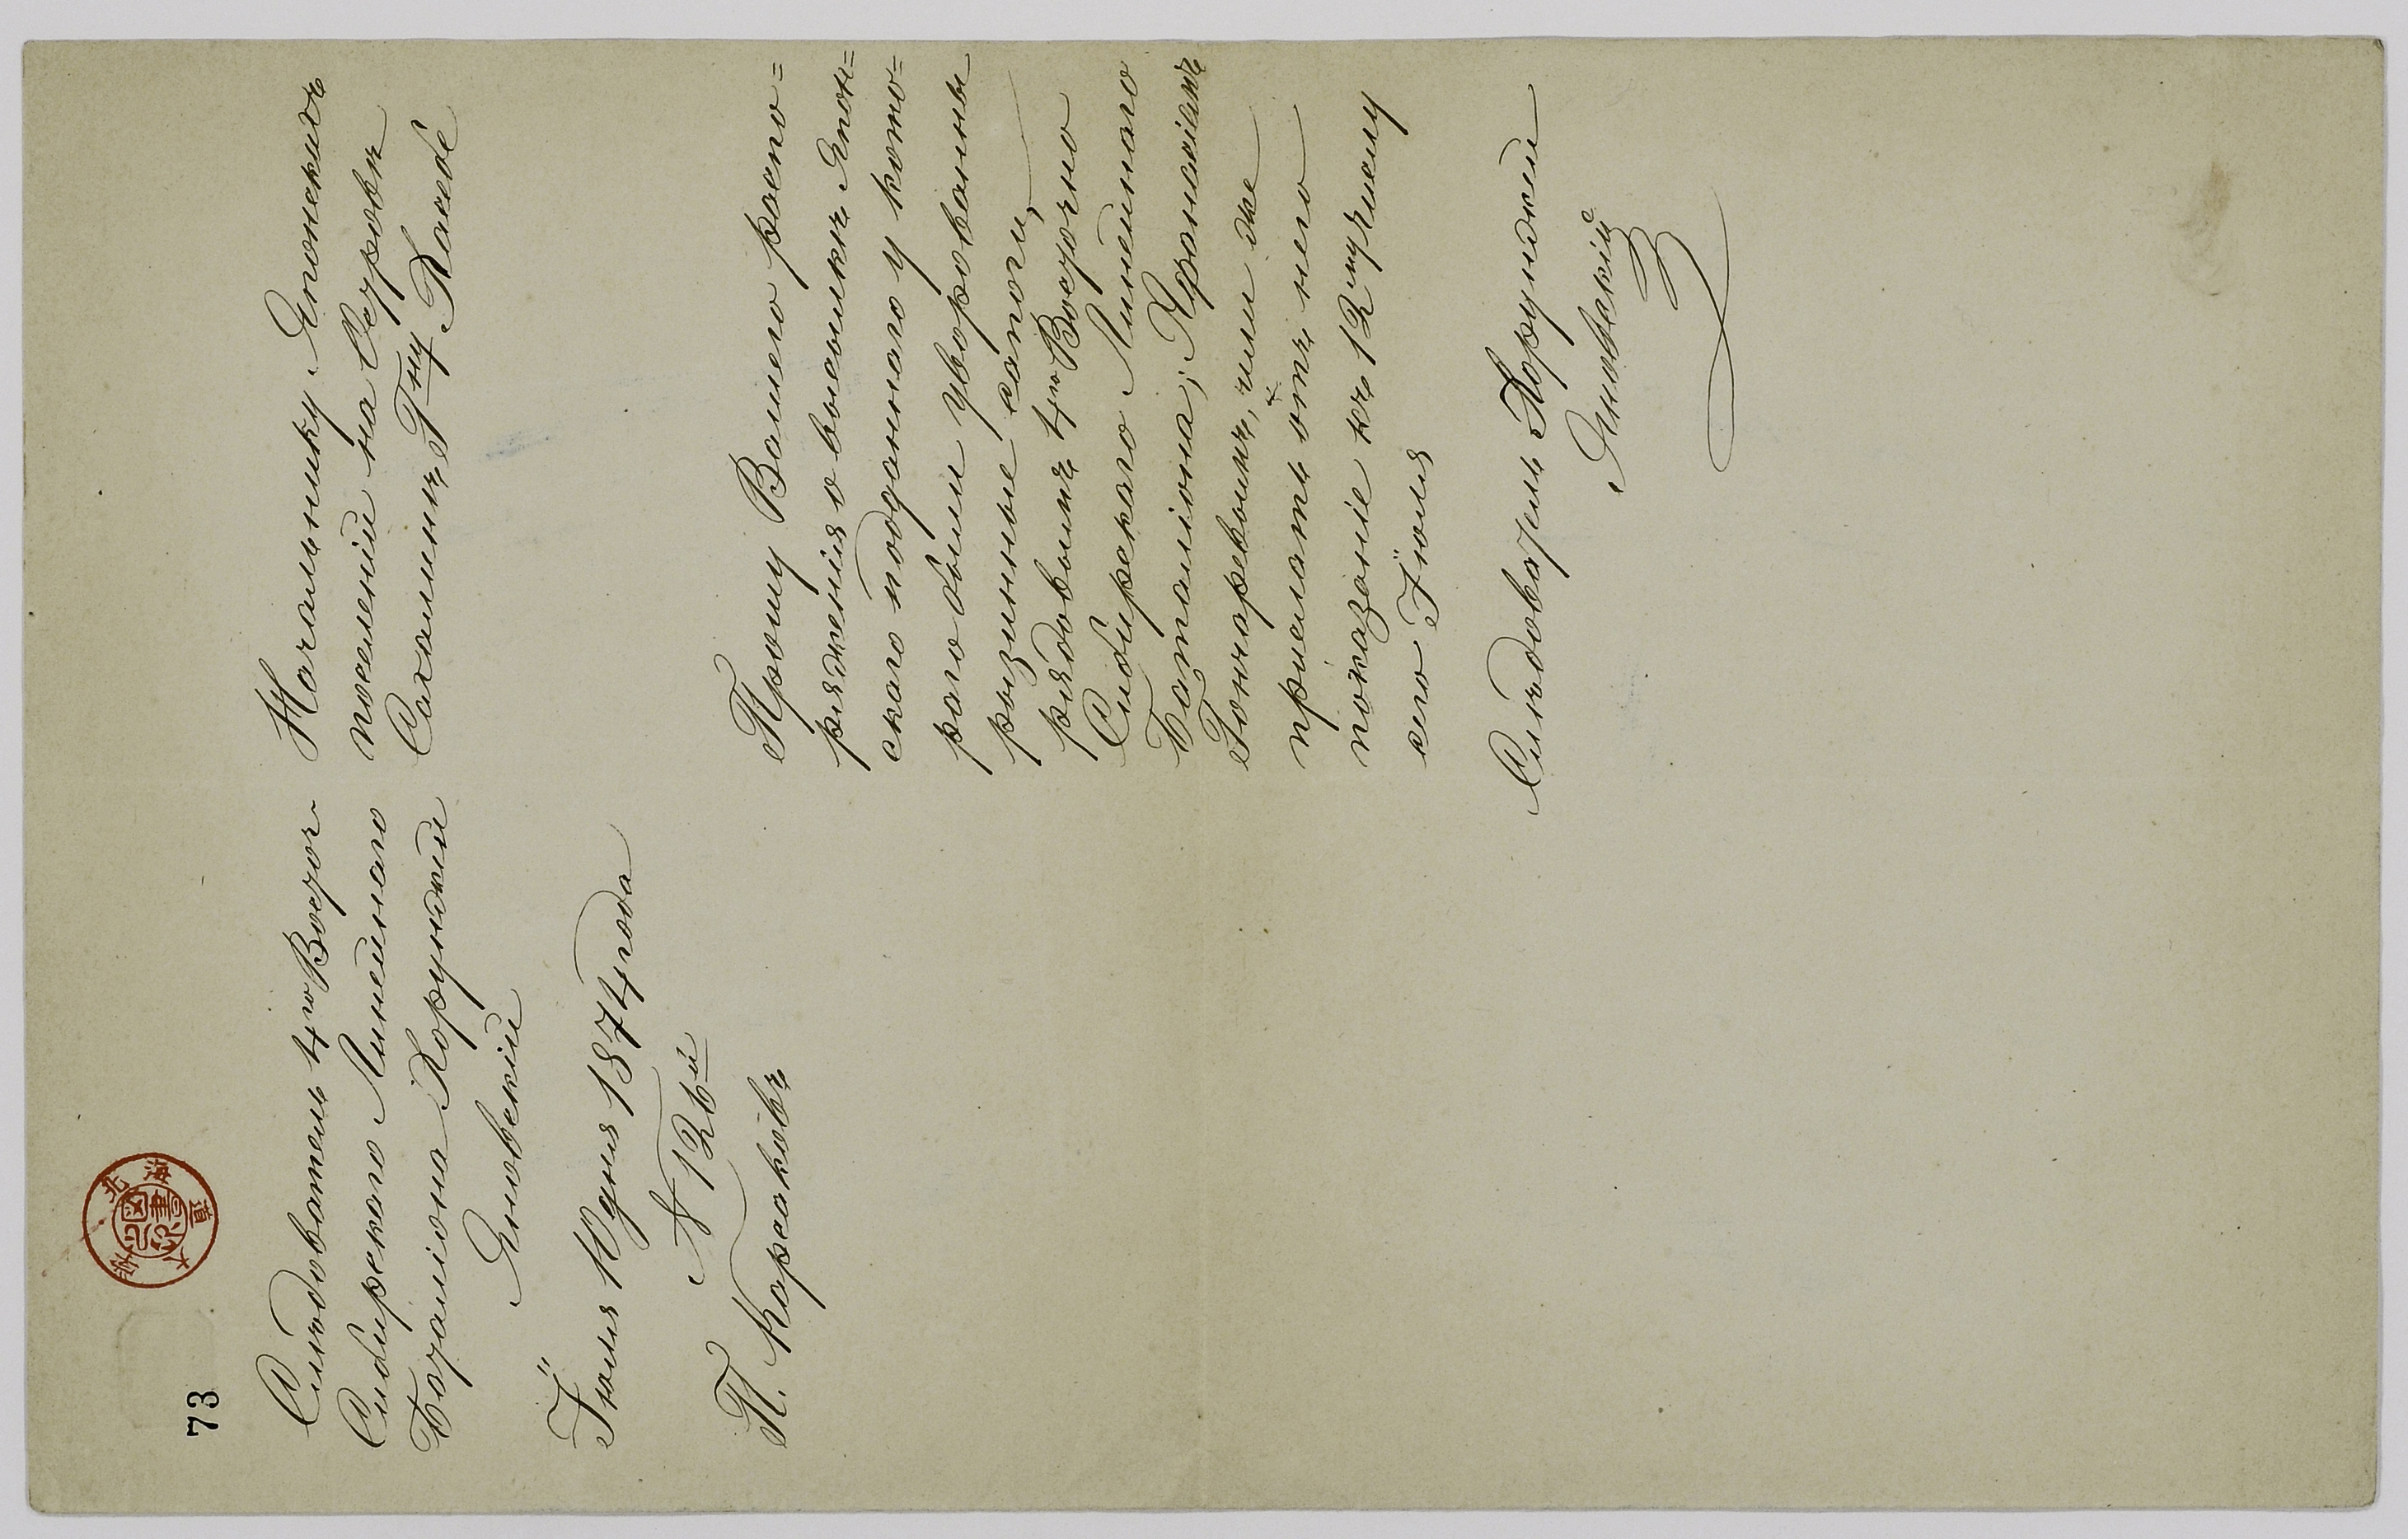 73
Слѣдователь 4го Восточ
Сибирскаго Линейнаго
Баталіона Хорунжій
Яновскій
Іюля 10 дня 1874 года
№ 126й
П. Корсаковъ
Начальнику Японскихъ
поселеній на Островѣ
Сахалинѣ Гну Хаседе
Прошу Вашего распо=
ряженія о высылкѣ Япон=
скаго подданнаго у кото=
раго были уворованны
резинные сапоги,
рядовымъ 4го Восточно
Сибирскаго Линейнаго
Баталіона,
Гончаревымъ, или же
прислать отъ него
показаніе къ 12му числу
сего Іюля
Слѣдователь Хорунжій
Яновскій